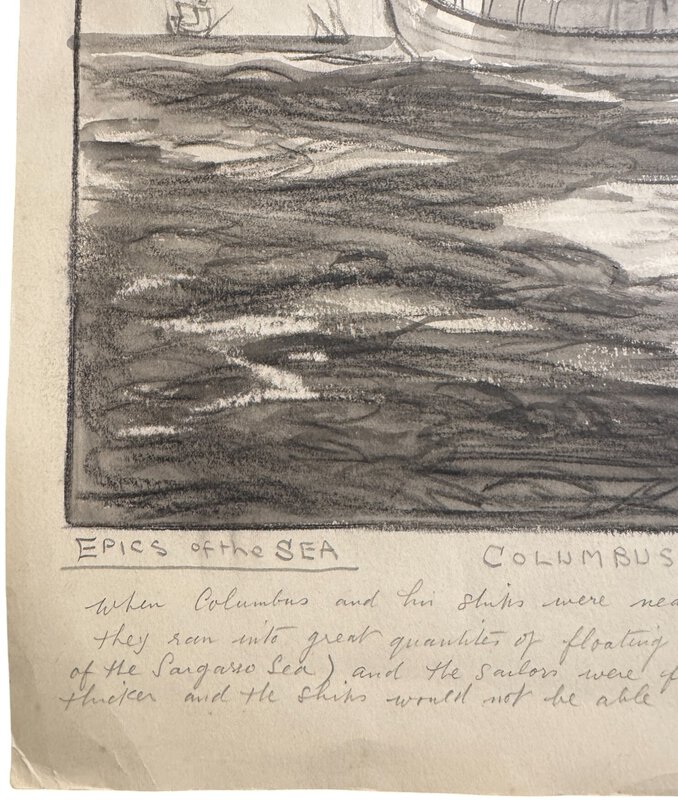 EPICS of the SEA COLUMBUS
When Columbus and his ships were nea
they ran into great quantites of floating
of the Sargasso Sea) and the sailors were f
thicker and the ships would not be able